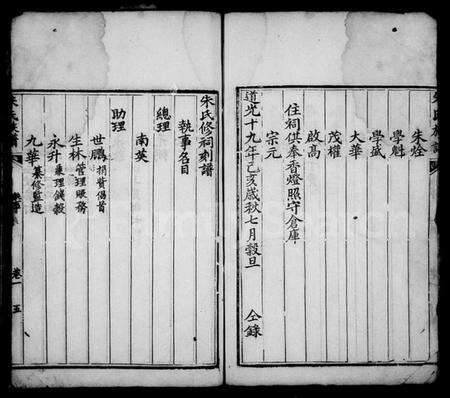 朱銓
學魁
學盛
大華
茂權
啟高
宗元
住祠供奉香燈照守倉庫
道光十九年己亥歲秋七月穀旦 仝錄
朱氏修祠刻譜
執事名目
總理
南英
助理
世鵬 捐貲倡首
生林 管理賬務
永升 兼理錢穀
九華 纂修監造
卷一 五